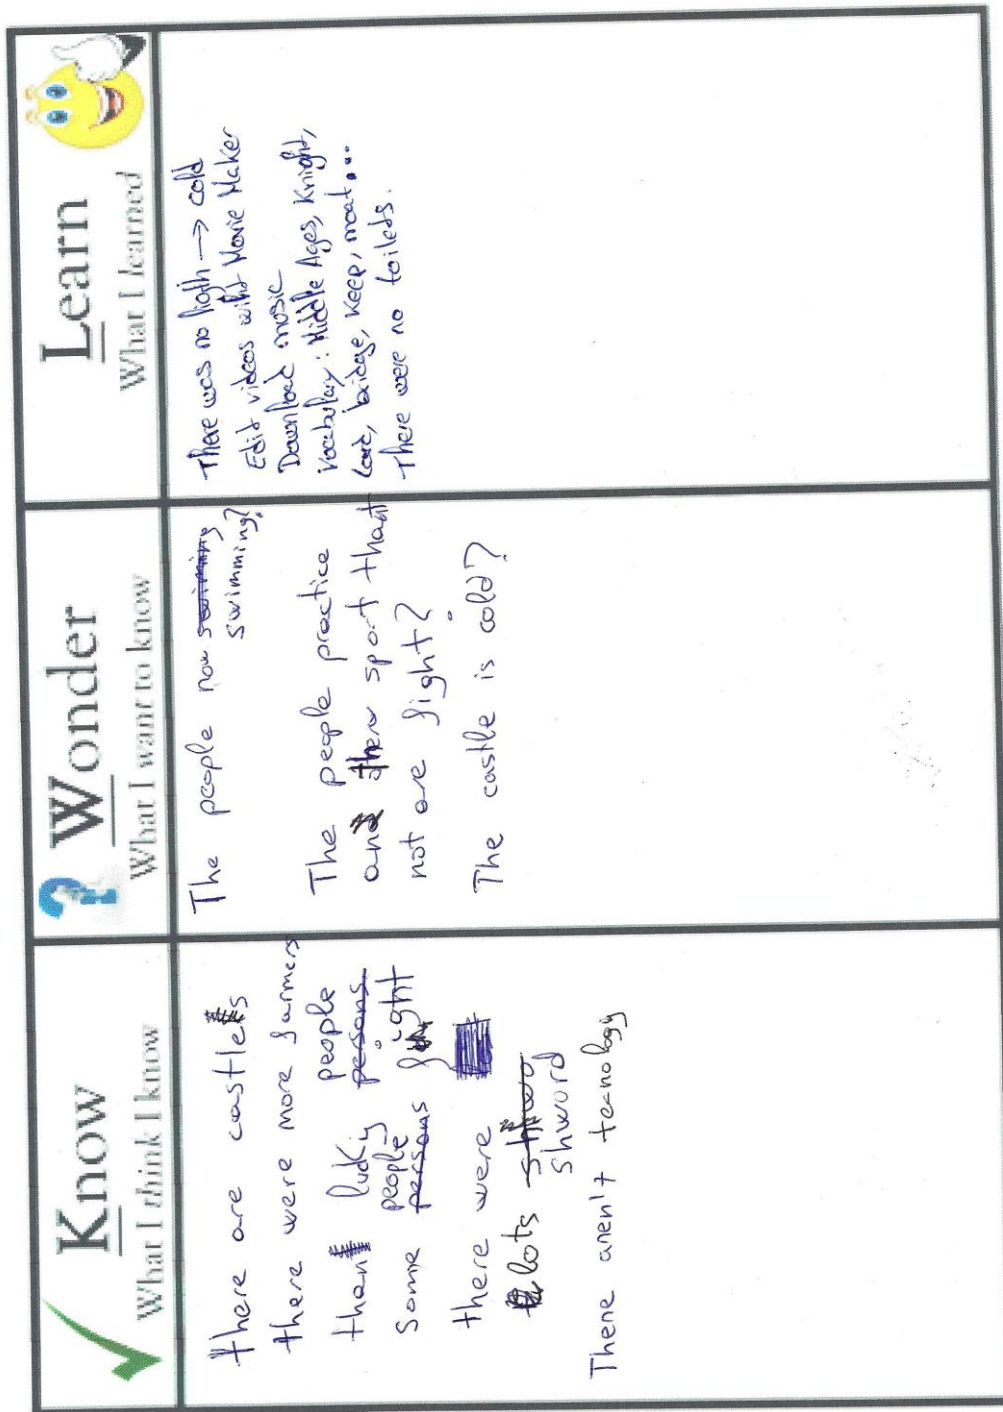 Know
What I think I know
there are castles
there were more farmers
than lucky people
persons
Some people fight
persons
there were
lots shword
There arent tecnology
? Wonder
What I want to know
The people now swimming?
swiming
The people practice
and ther sport that
not are fight?
The castle is cold?
Learn
What I learned
There was no ligth → cold
Edit videos wiht Movie Maker
Download music
Vocabulary: Middle Ages, Knight,
Lord, bridge, Keep, moat...
There were no toileds.